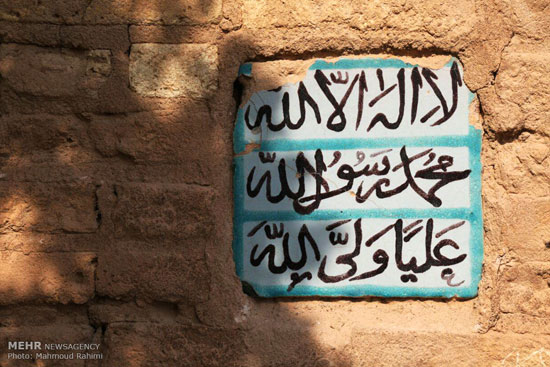 لا إله إلّا الله
محمد رسول الله
عليًا ولىّ الله
MEHR NEWSAGENCY
Photo: Mahmoud Rahimi